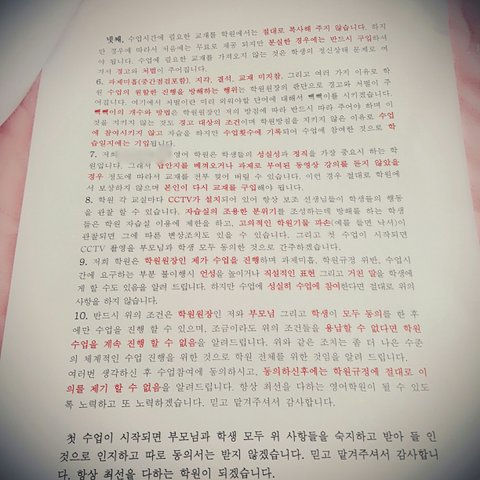 넷째, 수업시간에 필요한 교재를 학원에서는 절대로 복사해 주지 않습니다. 하지
만 경우에 따라서 처음에는 무료로 제공 되지만 분실한 경우에는 반드시 구입하셔
야 됩니다. 수업에 필요한 교재를 가져오지 않는 것은 학생의 정신상태 문제로 여
겨서 경고와 처벌이 주어집니다.
6. 과제미흡(중간점검포함), 지각, 결석, 교재 미지참, 그리고 여러 가지 이유로 학
원 수업의 원활한 진행을 방해하는 행위는 학원원장의 판단으로 경고와 처벌이 주
어집니다. 여기에서 처벌이란 미리 외워야할 단어에 대해서 빽빽이를 시키겠습니다.
빽빽이의 개수와 방법은 학원원장인 저의 방침에 따라 반드시 따라 주어야 하며 이
것을 지키지 않는 것도 경고 대상의 조건이며 학원방침을 지키지 않은 이유로 수업
에 참여시키지 않고 자습을 하지만 수업횟수에 기록되어 수업에 참여한 것으로 학
습일지에는 기입됩니다.
7. 저희 영어 학원은 학생들의 성실성과 정직을 가장 중요시 하는 학
원입니다. 그래서 답안지를 베껴오거나 과제로 부여된 동영상 강의를 듣지 않았을
경우 정도에 따라서 교재를 전부 찢어 버릴 수 있습니다. 이런 경우 절대로 학원에
서 보상하지 않으며 본인이 다시 교재를 구입해야 됩니다.
8. 학원 각 교실마다 CCTV가 설치되어 있어 항상 보조 선생님들이 학생들의 행동
을 관찰 할 수 있습니다. 자습실의 조용한 분위기를 조성하는데 방해를 하는 학생
들은 학원 자습실 이용에 제한을 하고, 고의적인 학원기물 파손(예를 들면 낙서)이
관찰되면 그에 따른 변상조치도 있을 수 있습니다. 그리고 첫 수업이 시작되면
CCTV 촬영을 부모님과 학생 모두 동의한 것으로 간주하겠습니다.
9. 저희 학원은 학원원장인 제가 수업을 진행하며 과제미흡, 학원규정 위반, 수업시
간에 요구하는 부분 불이행시 언성을 높이거나 직설적인 표현 그리고 거친 말을 학생에
게 할 수도 있음을 알려 드립니다. 하지만 수업에 성실히 수업에 참여한다면 절대로 위의
사항을 하지 않습니다.
10. 반드시 위의 조건은 학원원장인 저와 부모님 그리고 학생이 모두 동의를 한 후
에만 수업을 진행 할 수 있으며, 조금이라도 위의 조건들을 용납할 수 없다면 학원
수업을 계속 진행 할 수 없음을 알려드립니다. 위와 같은 조치는 좀 더 나은 수준
의 체계적인 수업 진행을 위한 것으로 학원 전체를 위한 것임을 알려 드립니다.
여러번 생각하신 후 수업참여에 동의하시고, 동의하신후에는 학원규정에 절대로 이
의를 제기 할 수 없음을 알려드립니다. 항상 최선을 다하는 영어학원이 될 수 있도
록 노력하고 또 노력하겠습니다. 믿고 맡겨주셔서 감사합니다.
첫 수업이 시작되면 부모님과 학생 모두 위 사항들을 숙지하고 받아 들 인
것으로 인지하고 따로 동의서는 받지 않겠습니다. 믿고 맡겨주셔서 감사합니
다. 항상 최선을 다하는 학원이 되겠습니다.